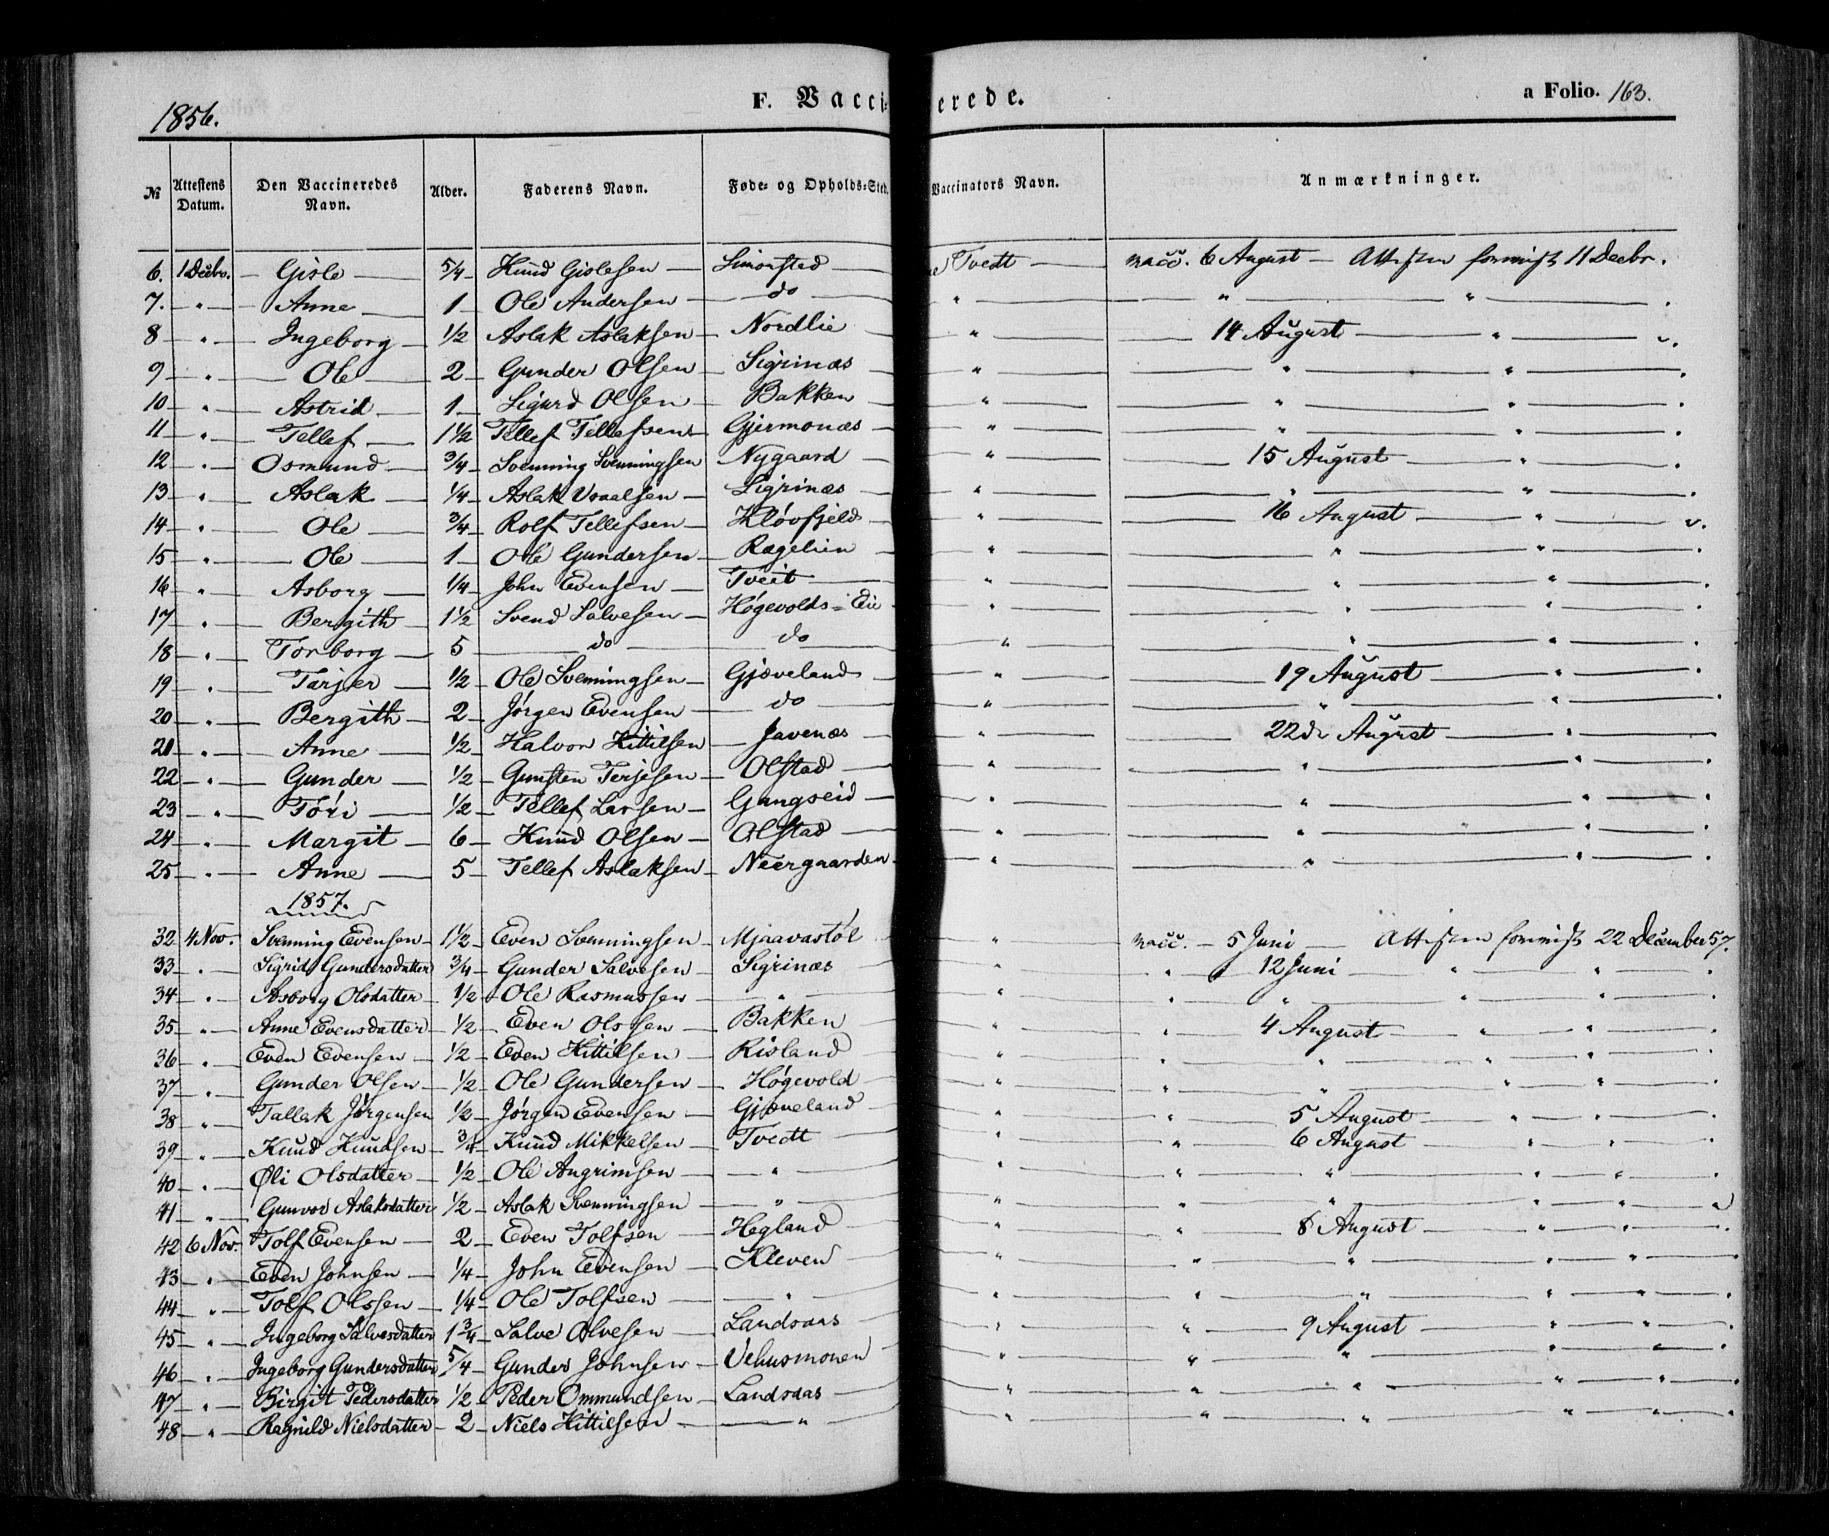 1856. F. Vaccinerede. a Folio. 163.
№ Attestens Datum. Den Vaccineredes Navn. Alder. Faderens Navn. Føde- og Opholds-Sted. Vaccinators Navn. Anmærkninger.
6. 1 Decbr. — Gisle 5/4 Knud Gislesen — Simonsted — Tvedt — vacc. 6 August — Attesten foreviist 11 Decbr.
7. " — Anne — 1 — Ole Andersen — do — " — " — " — .
8 " — Ingeborg — 1/2 Aslak Aslaksen — Nordlie — " — 14 August — " — .
9 — " — Ole — 2 — Gunder Olsen — Sigrinæs — " — " — " — .
10 — " — Astrid — 1 — Sigurd Olsen — Bakken — " — " — " — .
11 — " — Tellef — 1 1/2 Tellef Tellefsen — Gjermonæs — " — " — " — .
12 — " — Osmund — 3/4 — Svenning Svenningsen Nygaard — " — 15 August — " — .
13 — " — Aslak — 1/4 — Aslak Vraalsen — Sigrinæs — " — " — " — .
14 — " — Ole — 3/4 — Rolf Tellefsen — Kløvfjeld — " — 16 August — " — .
15 — " — Ole — 1 — Ole Gundersen — Rægelien — " — " — " — .
16 — " — Asborg — 1/4 — John Evensen — Tveit — " — " — " — .
17 — " — Bergith — 1 1/2 Svend Salvesen — Høgevolds-Eie — " — " — " — .
18 — " — Torborg — 5 — do — do — " — " — " — .
19 — " — Tarjer — 1/2 — Ole Svenningsen — Gjæveland — " — 19 August — " — .
20 — " — Bergith — 2 — Jørgen Evensen — do — " — " — " — .
21 — " — Anne — 1/2 — Halvor Kittilsen — Javenæs — " — 22de August — " — .
22 — " — Gunder — 1/2 — Gunsten Terjesen — Olstad — " — " — " — .
23 — " — Tøri — 1/2 — Tellef Larsen — Gangseid — " — " — " — .
24 — " — Margit — 6 — Knud Olsen — Olstad — " — " — " — .
25 — " — Anne — 5 — Tellef Aslaksen — Neergaarden — " — " — " — .
1857.
32 4 Nov. Svenning Evensen — 1 1/2 — Even Svenningsen — Mjaavastøl — " — vacc. — 5 Juni — Attesten foreviist 22 December 57.
33 — " — Sigrid Gundersdatter 3/4 — Gunder Salvesen — Sigrinæs — " — " — 12 Juni — " — " — .
34 — " — Asborg Olsdatter — 1/2 — Ole Rasmussen — " — " — " — " — " — " — .
35 — " — Anne Evensdatter — 1/2 — Even Olssen — Bakken — " — " — 4 August — " — " — .
36 — " — Even Evensen — 1/2 — Even Kittilsen — Risland — " — " — " — " — " — .
37 — " — Gunder Olsen — 1/2 — Ole Gundersen — Høgevold — " — " — " — " — " — .
38 — " — Tallak Jørgensen 1/2 — Jørgen Evensen — Gjæveland — " — " — 5 August — " — " — .
39 — " — Knud Knudsen — 3/4 — Knud Mikkelsen — Tvedt — " — " — 6 August — " — " — .
40 — " — Øli Olsdatter — 1/2 — Ole Angrimsen — " — " — " — " — " — " — .
41 — " — Gunvor Aslaksdatter 1/2 — Aslak Svenningsen — " — " — " — " — " — " — .
42 6 Nov. Tolf Evensen — 2 — Even Tolfsen — Hegland — " — " — 8 August — " — " — .
43 — " — Even Johnsen — 1/4 — John Evensen — Kleven — " — " — " — " — " — .
44 — " — Tolf Olssen — 1/4 — Ole Tolfsen — " — " — " — " — " — " — .
45 — " — Ingeborg Salvesdatter 1 3/4 — Salve Olvesen — Landsaas — " — " — 9 August — " — " — .
46 — " — Ingeborg Gundersdatter 5/4 — Gunder Johnsen — Vehusmonen — " — " — " — " — " — .
47 — " — Birgit Pedersdatter 1/2 — Peder Ommundsen — Landsaas — " — " — " — " — " — .
48 — " — Ragnild Nielsdatter — 2 — Niels Kittilsen — " — " — " — " — " — " — .